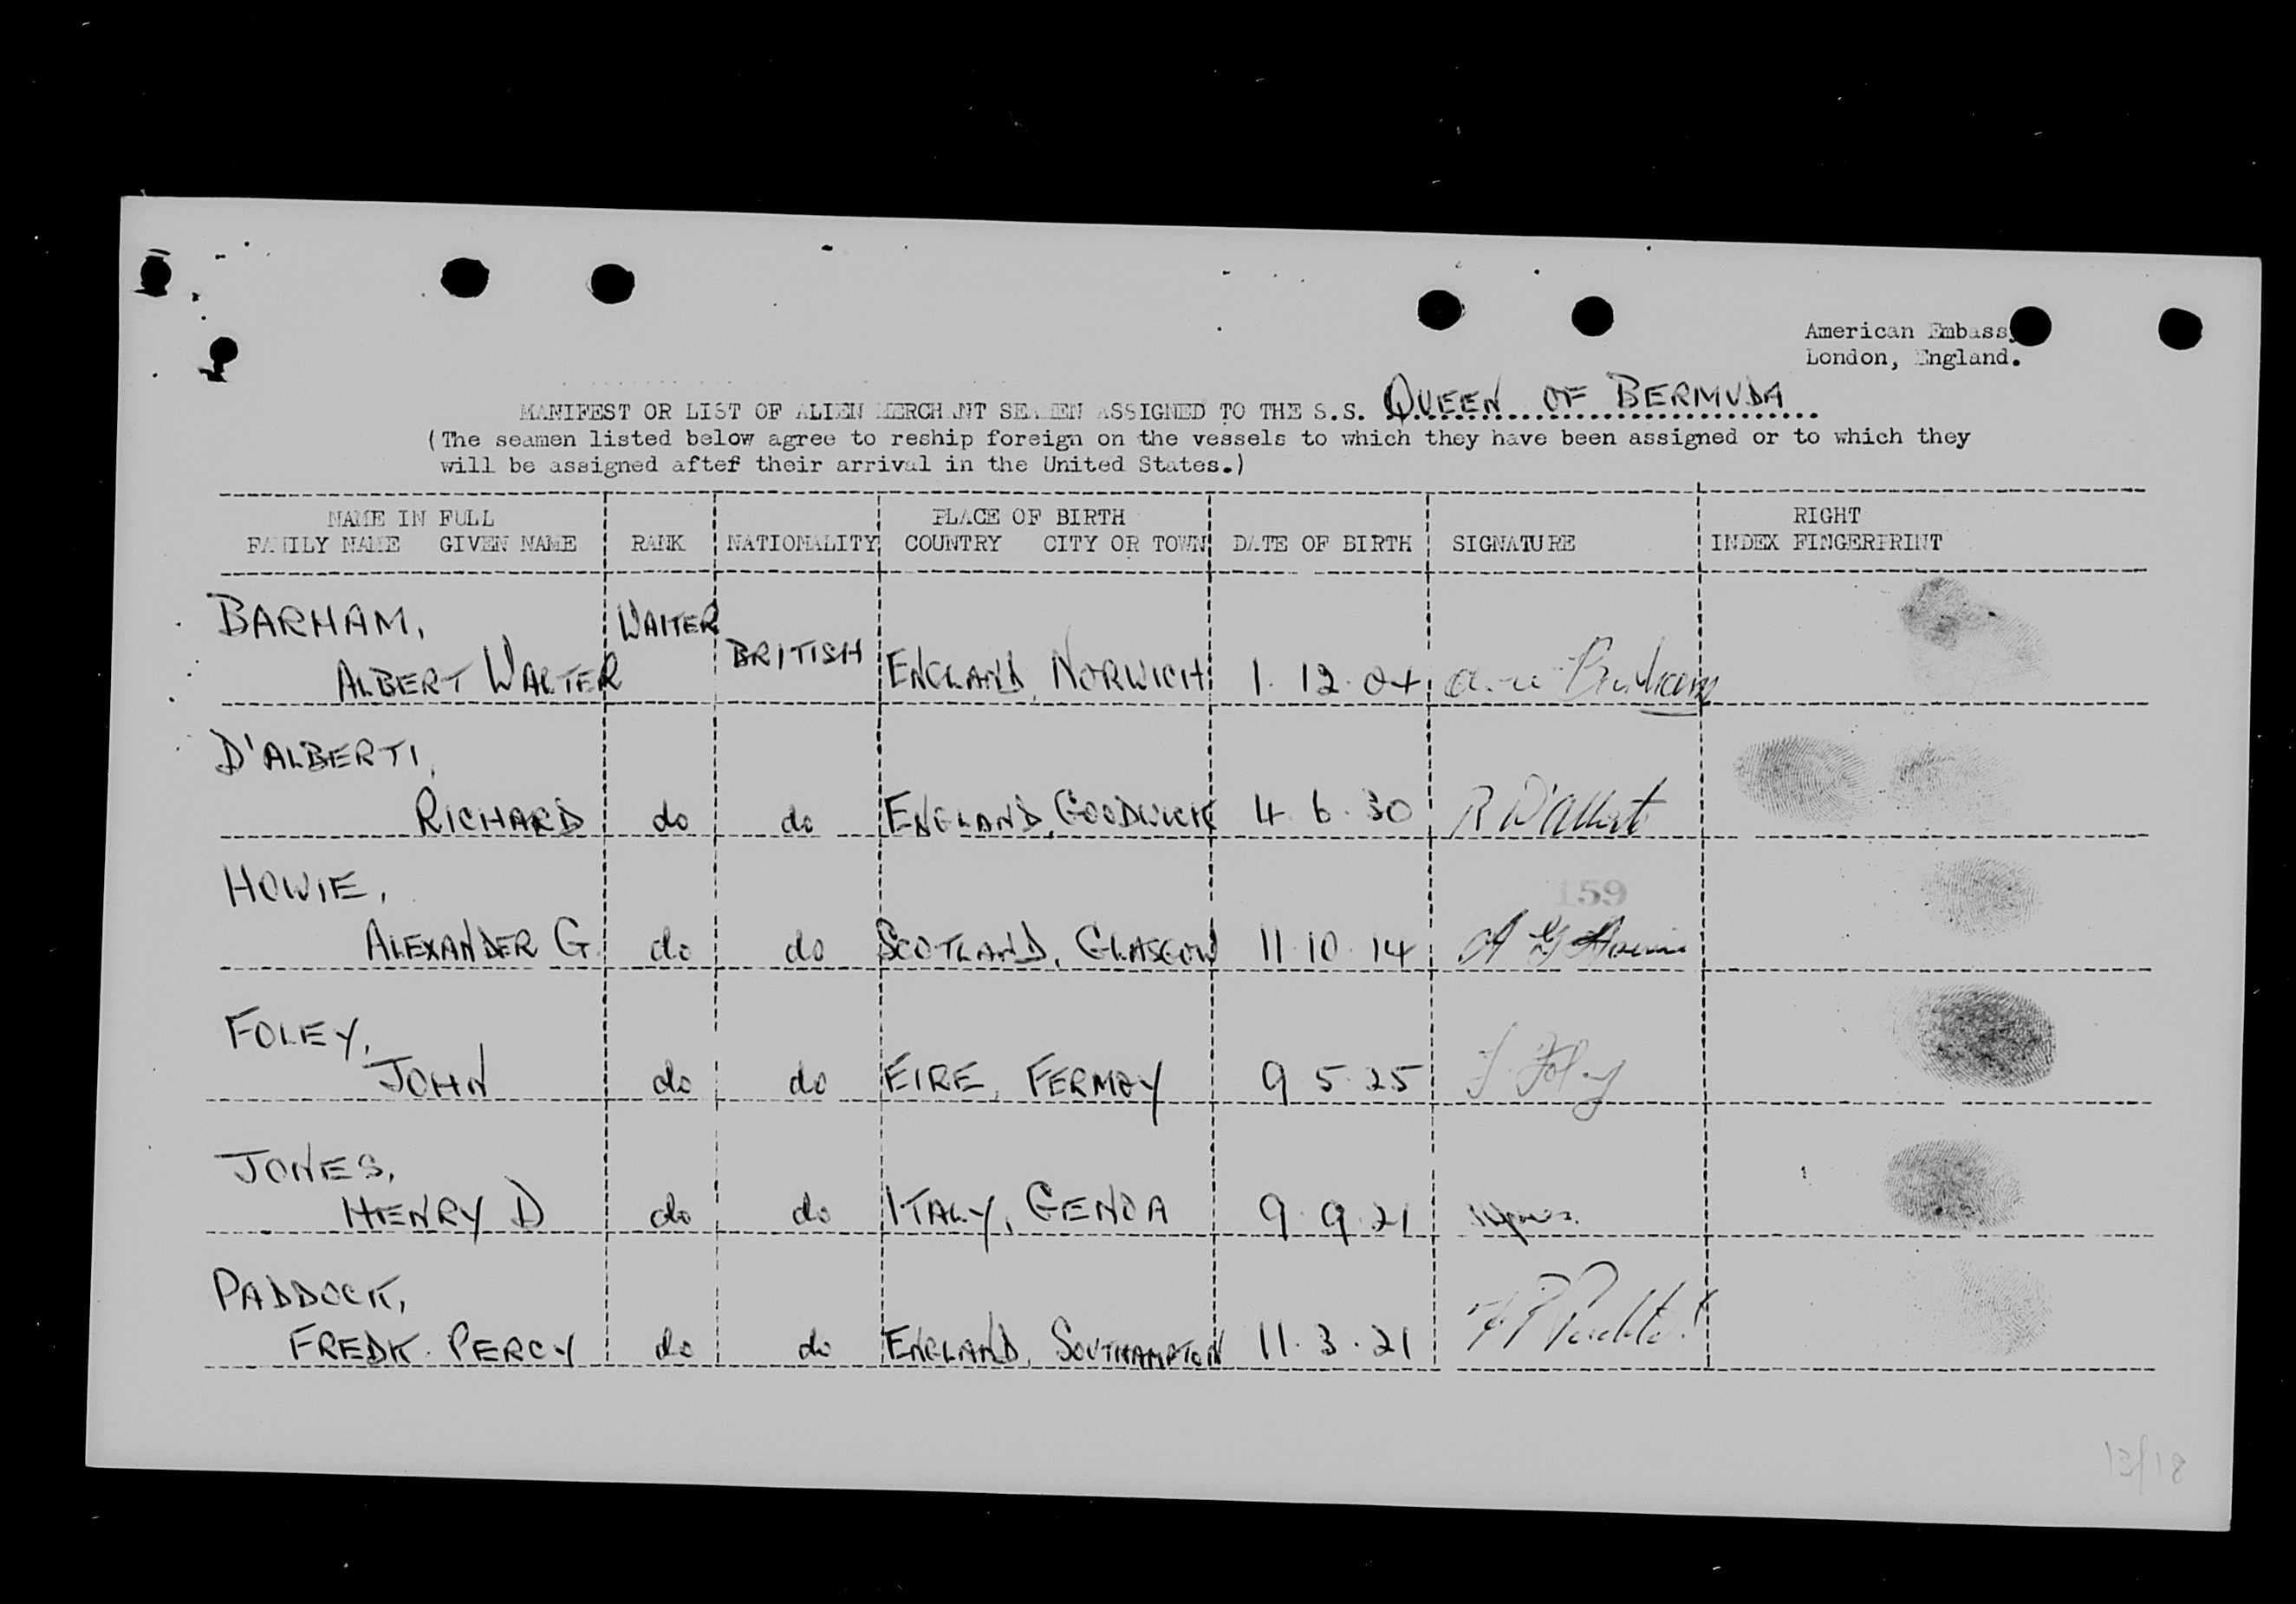 American Embassy
London, England.
MANIFEST OR LIST OF ALIEN MERCHANT SEAMEN ASSIGNED TO THE S.S. QUEEN OF BERMUDA
(The seamen listed below agree to reship foreign on the vessels to which they have been assigned or to which they
will be assigned aftef their arrival in the United States.)
NAME IN FULL PLACE OF BIRTH RIGHT
FAMILY NAME GIVEN NAME RANK NATIONALITY COUNTRY CITY OR TOWN DATE OF BIRTH SIGNATURE INDEX FINGERPRINT
BARHAM, WAITER
ALBERT WALTER BRITISH ENGLAND, NORWICH 1. 12. 04 Barham
D'ALBERTI,
RICHARD do do ENGLAND, GOODWICK 4. 6. 30 R D'Alberti
HOWIE, 159
ALEXANDER G. do do SCOTLAND, GLASGOW 11. 10. 14 A G Howie
FOLEY,
JOHN do do EIRE, FERMOY 9 5. 25 J. Foley
JONES,
HENRY D do do ITALY, GENOA 9. 9. 21
PADDOCK,
FREDK. PERCY do do ENGLAND, SOUTHAMPTON 11. 3. 21
13/18